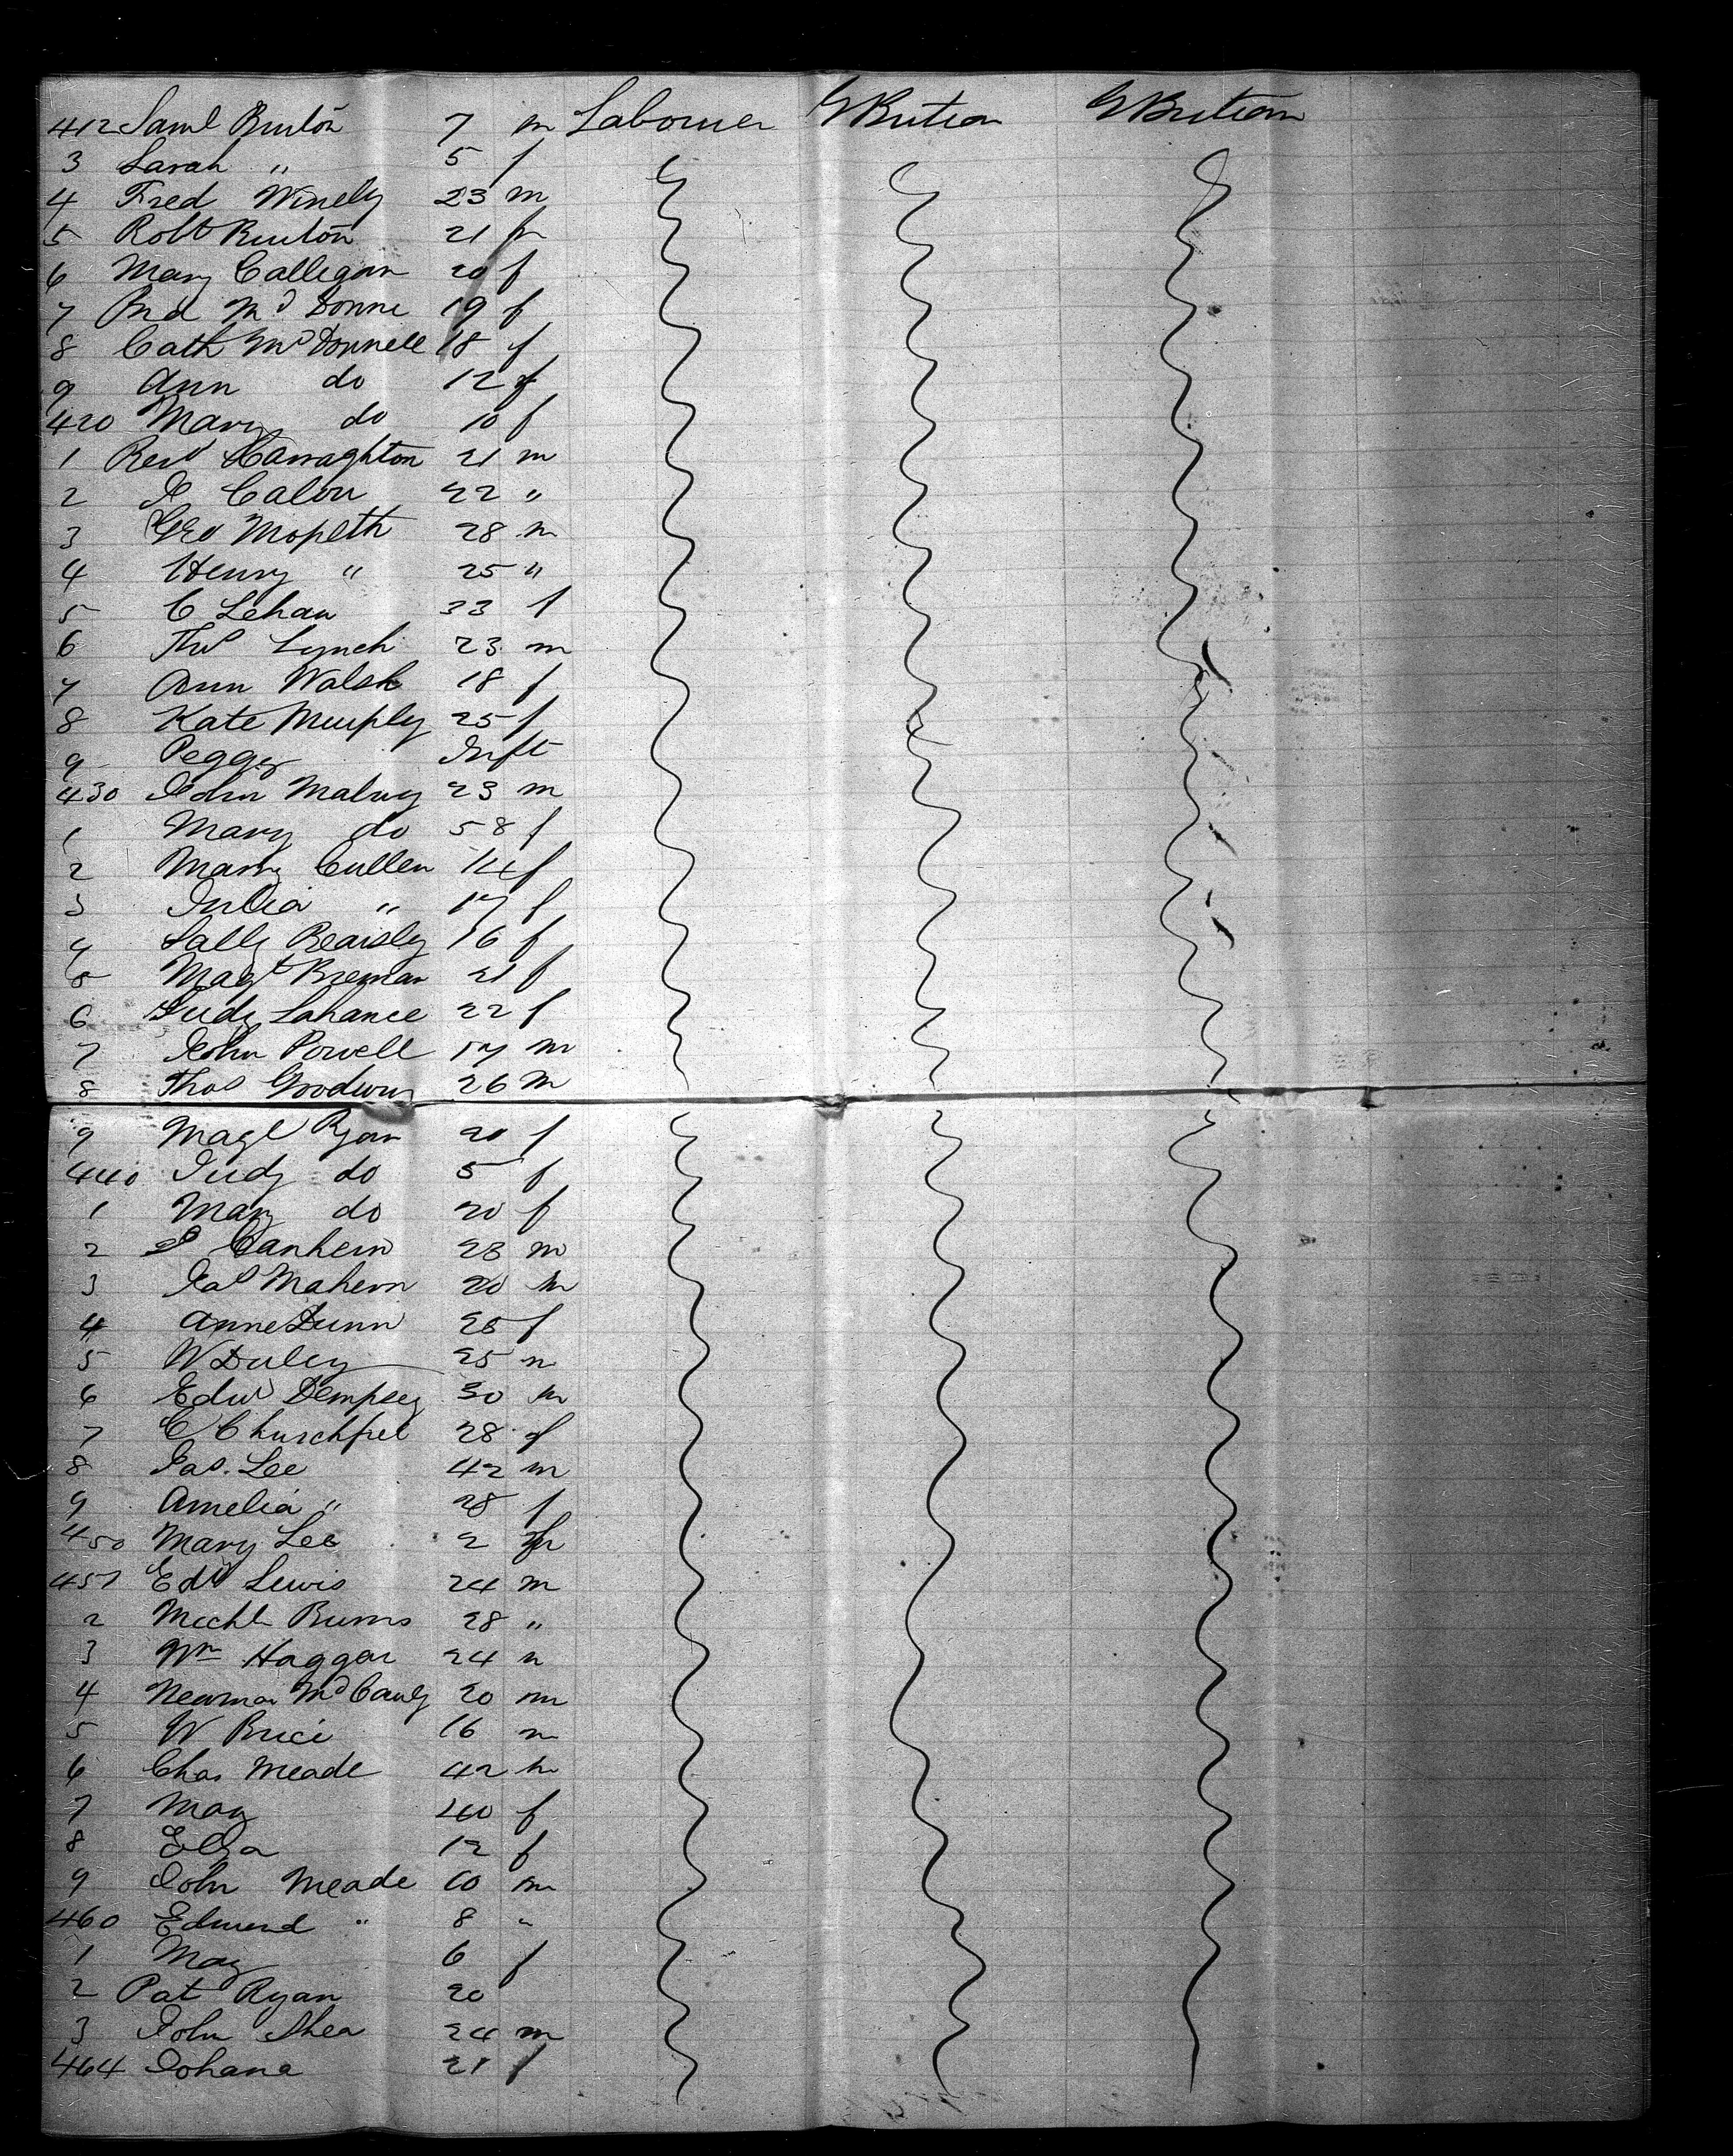 412 Saml Burton 7 m Laborer G Britian G Britian
3 Sarah " 5 f
4 Fred Winely 23 m
5 Robt Burton 21 m
6 Mary Calligan 20 f
7 Brd McDonne 19 f
8 Cath McDonnell 18 f
9 Ann do 12 f
420 Mary do 10 f
1 Harraghton 21 m
2 J Calon 22 "
3 Geo Mopeth 28 m
4 Henry " 25 "
5 C Lehan 33 f
6 Thos Lynch 23 m
7 Ann Walsh 18 f
8 Kate Murphy 25 f
9 Peggy Inft
430 John Malvey 23 m
1 Mary do 58 f
2 Mary Cullen 14 f
3 Julia " 17 f
4 Sally Bearsley 16 f
5 Magt Brennan 21 f
6 Judy Lahance 22 f
7 John Powell 17 m
8 Thos Goodwin 26 m
9 Magt Ryan 20 f
440 Judy do 5 f
1 Mary do 20 f
2 Canhern 28 m
3 Jas Mahern 20 m
4 Anne Dunn 28 f
5 W Duley 25 m
6 Edwd Dempsey 30 m
7 C Churchfiel 28 f
8 Jas. Lee 42 m
9 Amelia " 28 f
450 Mary Lee 2 f
451 Edwd Lewis 24 m
2 Michl Burns 28 "
3 Wm Haggar 24 m
4 McCauly 20 m
5 W Brice 16 m
6 Chas Meade 42 m
7 May 40 f
8 Elza 12 f
9 John Meade 10 m
460 Edmund " 8 "
1 May 6 f
2 Pat Ryan 20
3 John Shea 24 m
464 Johana 21 f